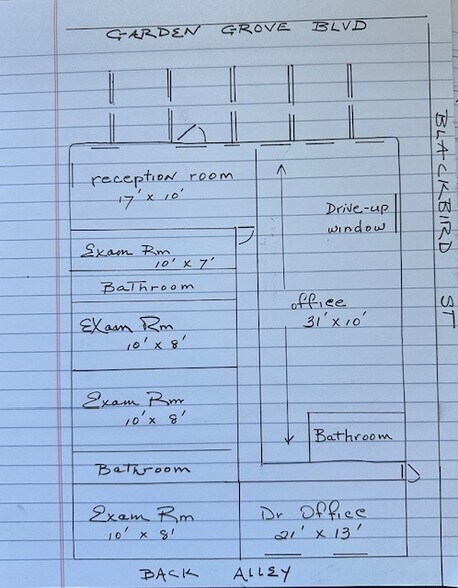 GARDEN GROVE BLVD
BLACKBIRD ST
reception room
17' x 10'
Drive-up
window
Exam Rm
10' x 7'
Bathroom
office
31' x 10'
Exam Rm
10' x 8'
Exam Rm
10' x 8'
Bathroom
Bathroom
Exam Rm
10' x 8'
Dr Office
21' x 13'
BACK ALLEY